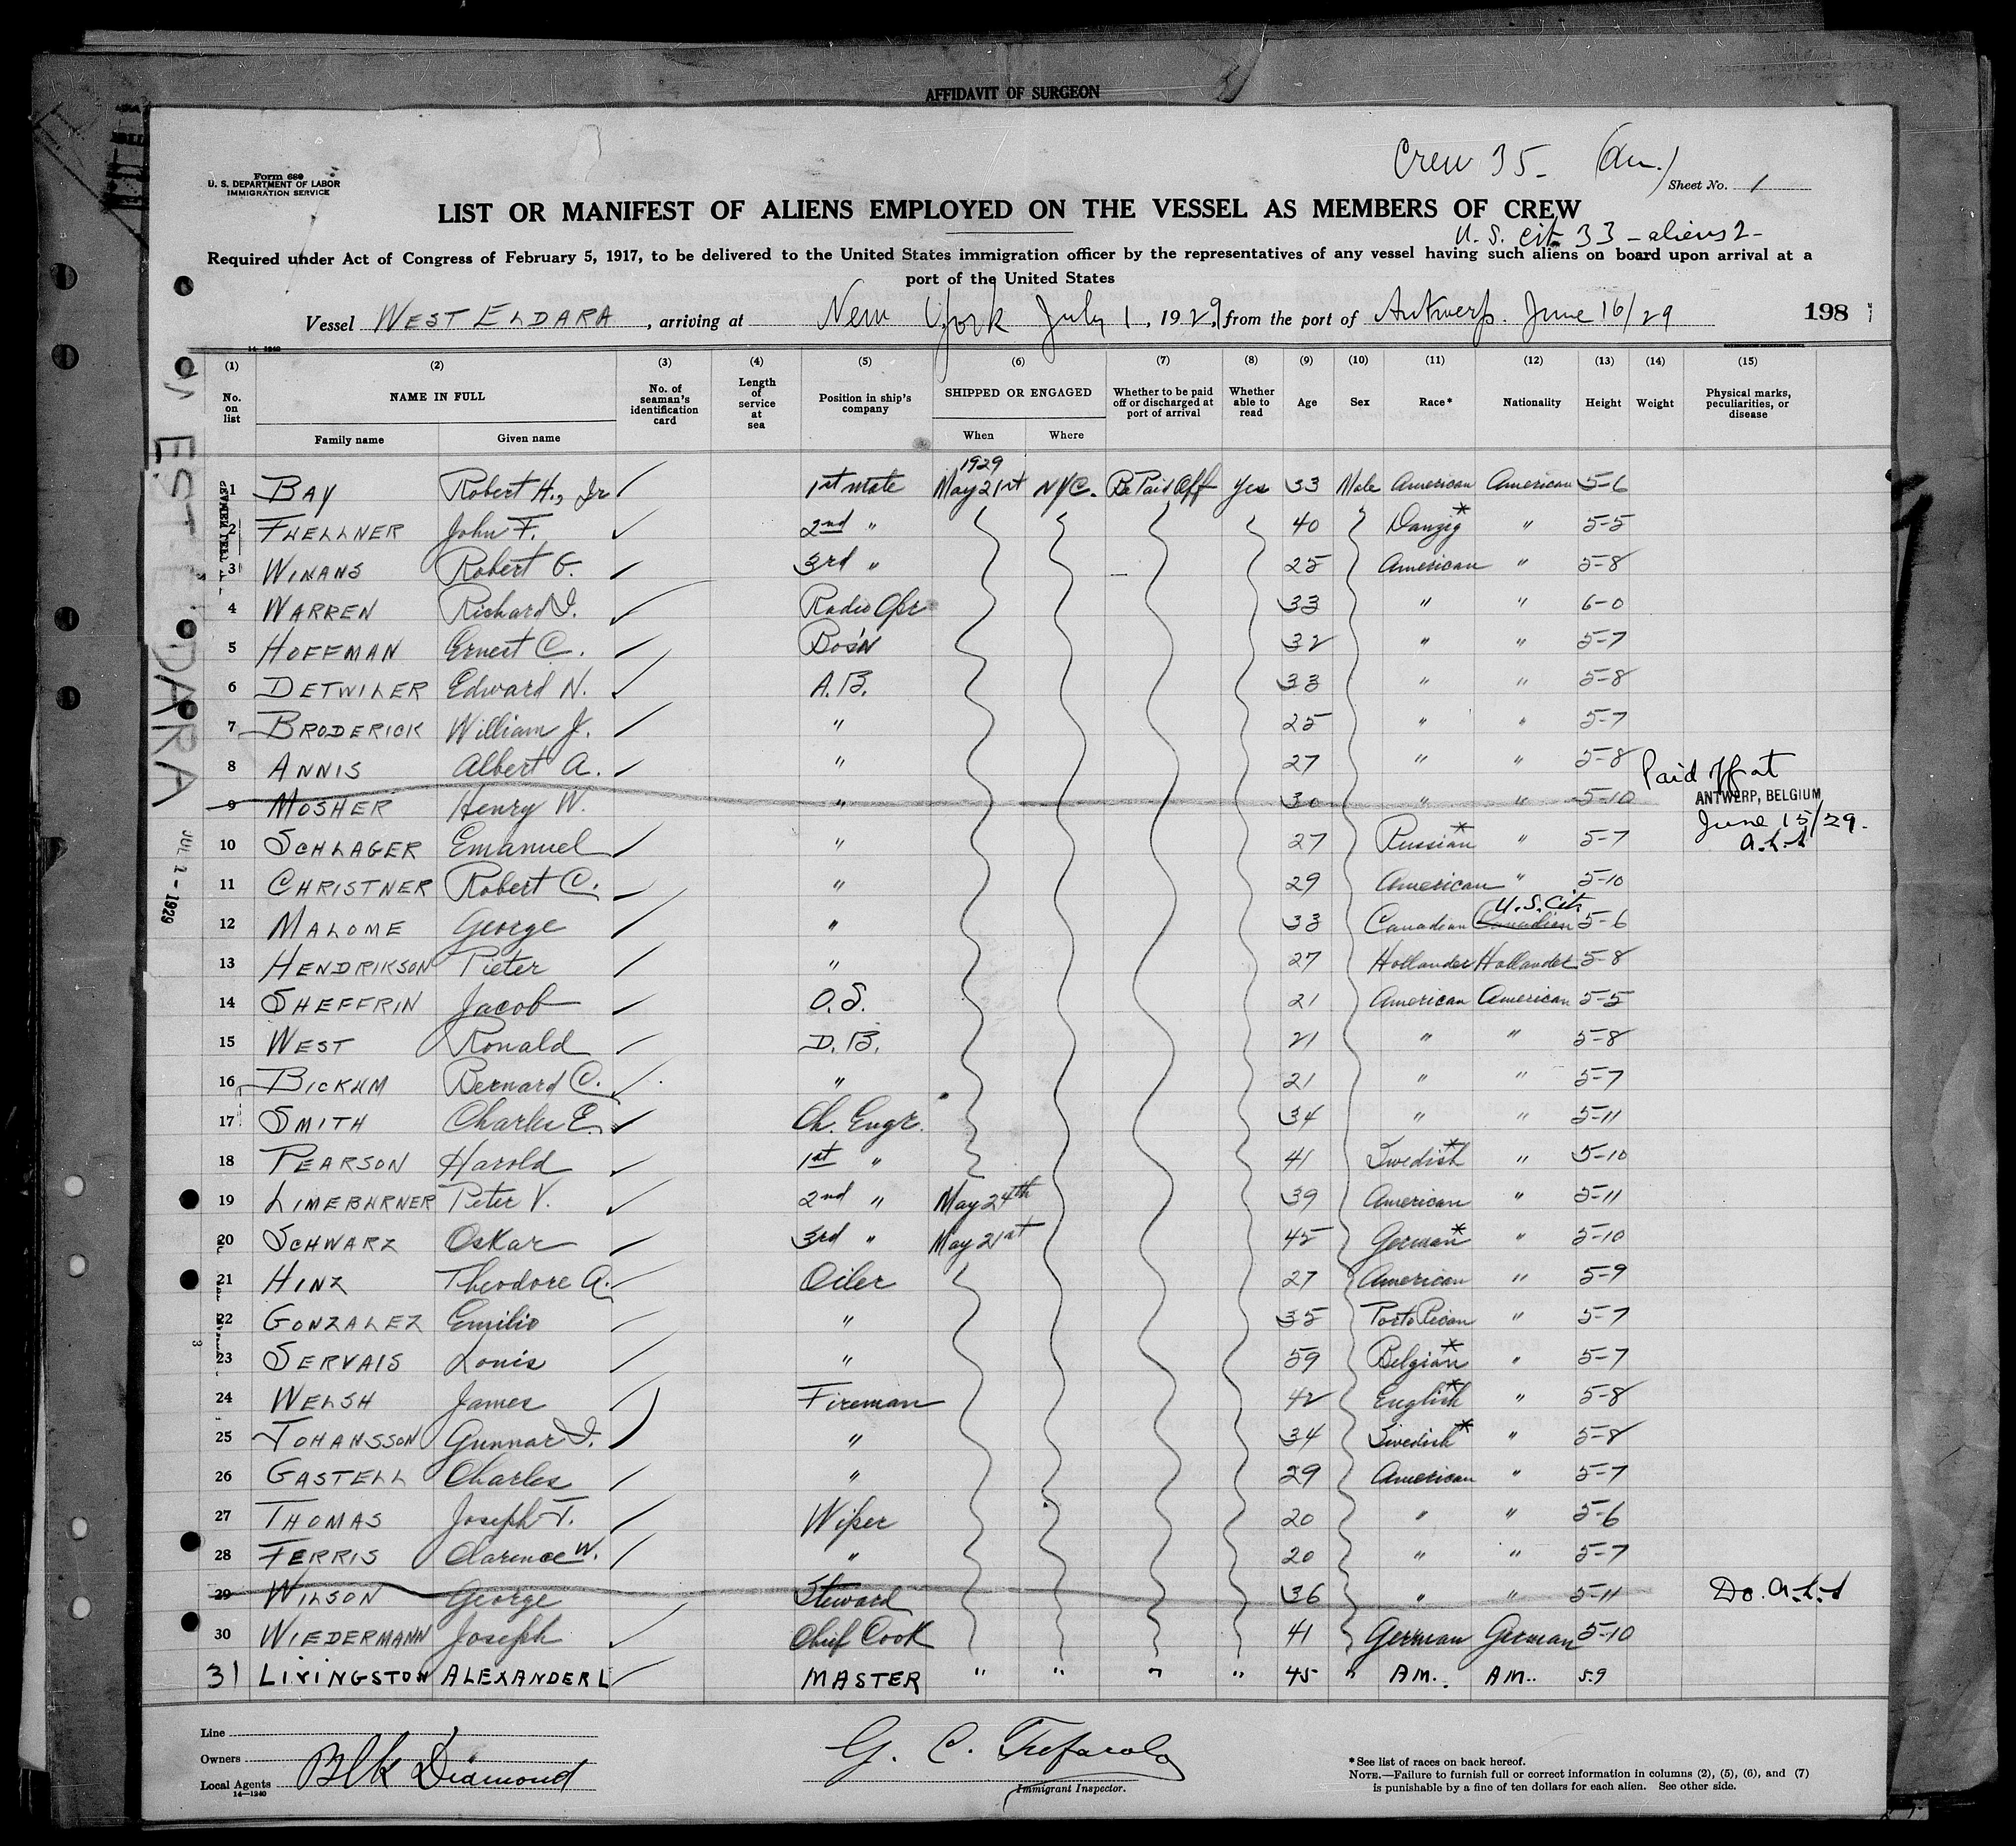 AFFIDAVIT OF SURGEON
Crew 35
Form 689
U. S. DEPARTMENT OF LABOR
IMMIGRATION SERVICE
Sheet No. 1
LIST OR MANIFEST OF ALIENS EMPLOYED ON THE VESSEL AS MEMBERS OF CREW
U. S. Cit 33 - aliens 2 -
Required under Act of Congress of February 5, 1917, to be delivered to the United States immigration officer by the representatives of any vessel having such aliens on board upon arrival at a
port of the United States
Vessel WEST ELDARA, arriving at New York July 1, 1929, from the port of Antwerp. June 16/29
198
14-1240
(1) (2) (3) (4) (5) (6) (7) (8) (9) (10) (11) (12) (13) (14) (15)
No. on list NAME IN FULL No. of seaman's identification card Length of service at sea Position in ship's company SHIPPED OR ENGAGED Whether to be paid off or discharged at port of arrival Whether able to read Age Sex Race* Nationality Height Weight Physical marks, peculiarities, or disease
Family name Given name When Where
1929
1 BAY Robert H., Jr 1st Mate May 21st NYC. Be Paid Off Yes 33 Male American American 5-6
2 FUELLNER John F. 2nd " 40 Danzig* " 5-5
3 WINANS Robert G. 3rd " 25 American " 5-8
4 WARREN Richard I. Radio Opr 33 " " 6-0
5 HOFFMAN Ernest C. Bos'n 32 " " 5-7
6 DETWILER Edward N. A.B. 33 " " 5-8
7 BRODERICK William J. " 25 " " 5-7
8 ANNIS Albert A. " 27 " " 5-8 Paid off at
9 MOSHER Henry W. " 30 " " 5-10 ANTWERP, BELGIUM
June 15/29.
10 SCHLAGER Emanuel " 27 Russian* " 5-7 a.L.L
11 CHRISTNER Robert C. " 29 American " 5-10
U.S. Cit
12 MALOME George " 33 Canadian Canadian 5-6
13 HENDRIKSON Pieter " 27 Hollander Hollander 5-8
14 SHEFFRIN Jacob O.S. 21 American American 5-5
15 WEST Ronald D.B. 21 " " 5-8
16 BICKUM Bernard C. " 21 " " 5-7
17 SMITH Charles E. Ch. Engr. 34 " " 5-11
18 PEARSON Harold 1st " 41 Swedish* " 5-10
19 LIMEBURNER Peter V. 2nd " May 24th 39 American " 5-11
20 SCHWARZ Oskar 3rd " May 21st 45 German* " 5-10
21 HINZ Theodore A. Oiler 27 American " 5-9
22 GONZALEZ Emilio " 35 Porto Rican " 5-7
23 SERVAIS Louis " 59 Belgian* " 5-7
24 WELSH James Fireman 42 English* " 5-8
25 JOHANSSON Gunnar I. " 34 Swedish* " 5-8
26 GASTELL Charles " 29 American " 5-7
27 THOMAS Joseph T. Wiper 20 " " 5-6
28 FERRIS Clarence W. " 20 " " 5-7
29 WILSON George Steward 36 " " 5-11 Do. a.L.L
30 WIEDERMANN Joseph Chief Cook 41 German German 5-10
31 LIVINGSTON ALEXANDER L MASTER " " " " 45 " AM. AM. 5.9
WEST ELDARA
JUL 1 - 1929
Line
Owners
Local Agents Blk Diamond
14-1240
G. C.
Immigrant Inspector.
*See list of races on back hereof.
NOTE.—Failure to furnish full or correct information in columns (2), (5), (6), and (7)
is punishable by a fine of ten dollars for each alien. See other side.